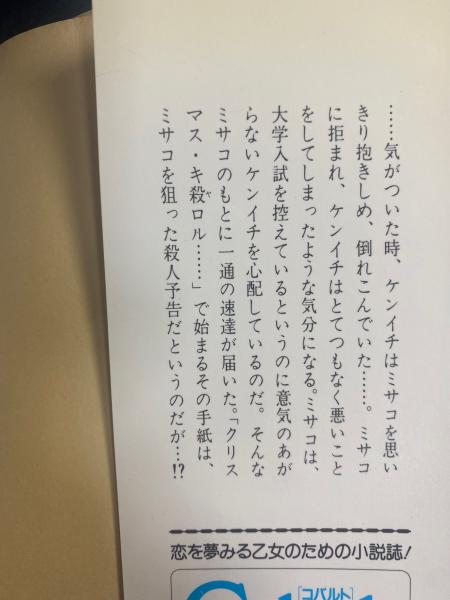 ……気がついた時、ケンイチはミサコを思い
きり抱きしめ、倒れこんでいた……。ミサコ
に拒まれ、ケンイチはとてつもなく悪いこと
をしてしまったような気分になる。ミサコは、
大学入試を控えているというのに意気のあが
らないケンイチを心配しているのだ。そんな
ミサコのもとに一通の速達が届いた。「クリス
マス・キ殺ヤロル……」で始まるその手紙は、
ミサコを狙った殺人予告だというのだが…!?
恋を夢みる乙女のための小説誌!
[コバルト]